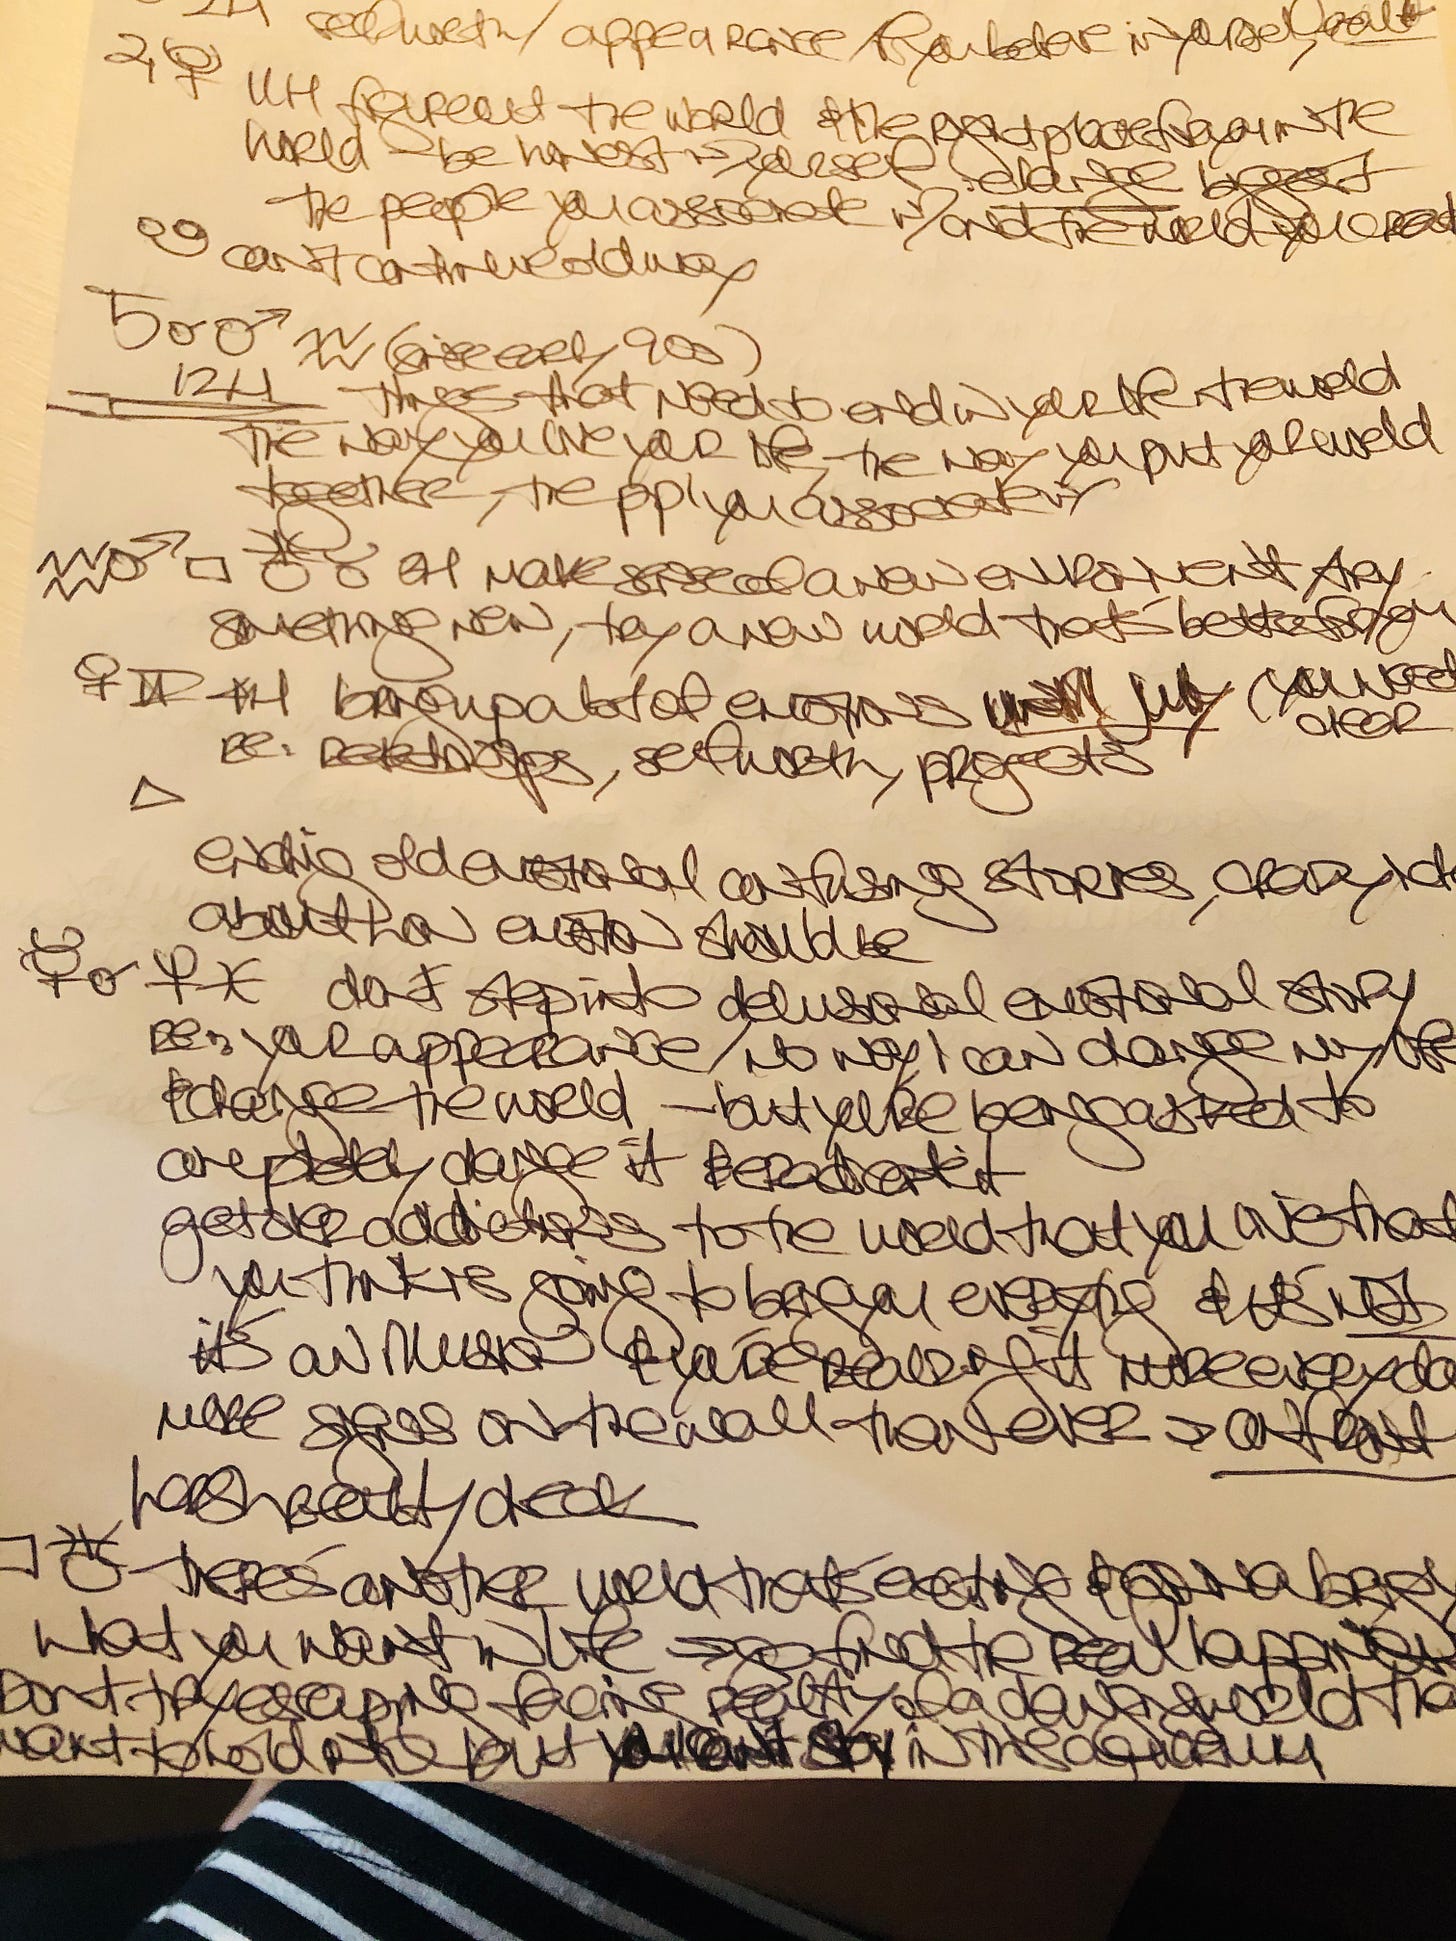 selfworth / appearance / if you believe in yourself,
♃ ☿ 11H the world & the right place for you in the
world – be honest w/ yourself. change biggest
the people you associate w/ and the world you
☋ can't continue old way
♄ ☌ ♂ ♒ (since early 90s)
12H things that need to end in your life + the world
the way you live your life, the way you put your world
together, the ppl you associate w/
♒ ♂ □ ♅ ♉ make sense of a new environment try
something new, try a new world that's better for you
♀ bring up a lot of emotions (you need
re: relationships, selfworth, projects clear
△
ending old emotional confusing stories, crazy
about how emotion should be
☿ ☌ ♆ ♓ don't step into delusional emotional story
re: your appearance / no way I can change my life
& change the world – but you're being asked to
completely change it & eradicate it
get over addictions to the world that you live that
you think is going to bring you everything & it's NOT
it's an illusion & you're realizing it more every day
more signs on the wall than ever → confront
harsh reality check
□ ♅ there's another world that's exciting & gonna bring
what you want in life → go find the real happiness
Don't try escaping facing reality of a dying world
want to hold onto but you can't stay in the